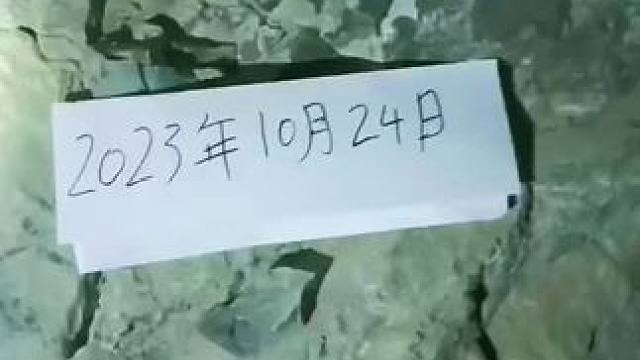 2023年10月24日